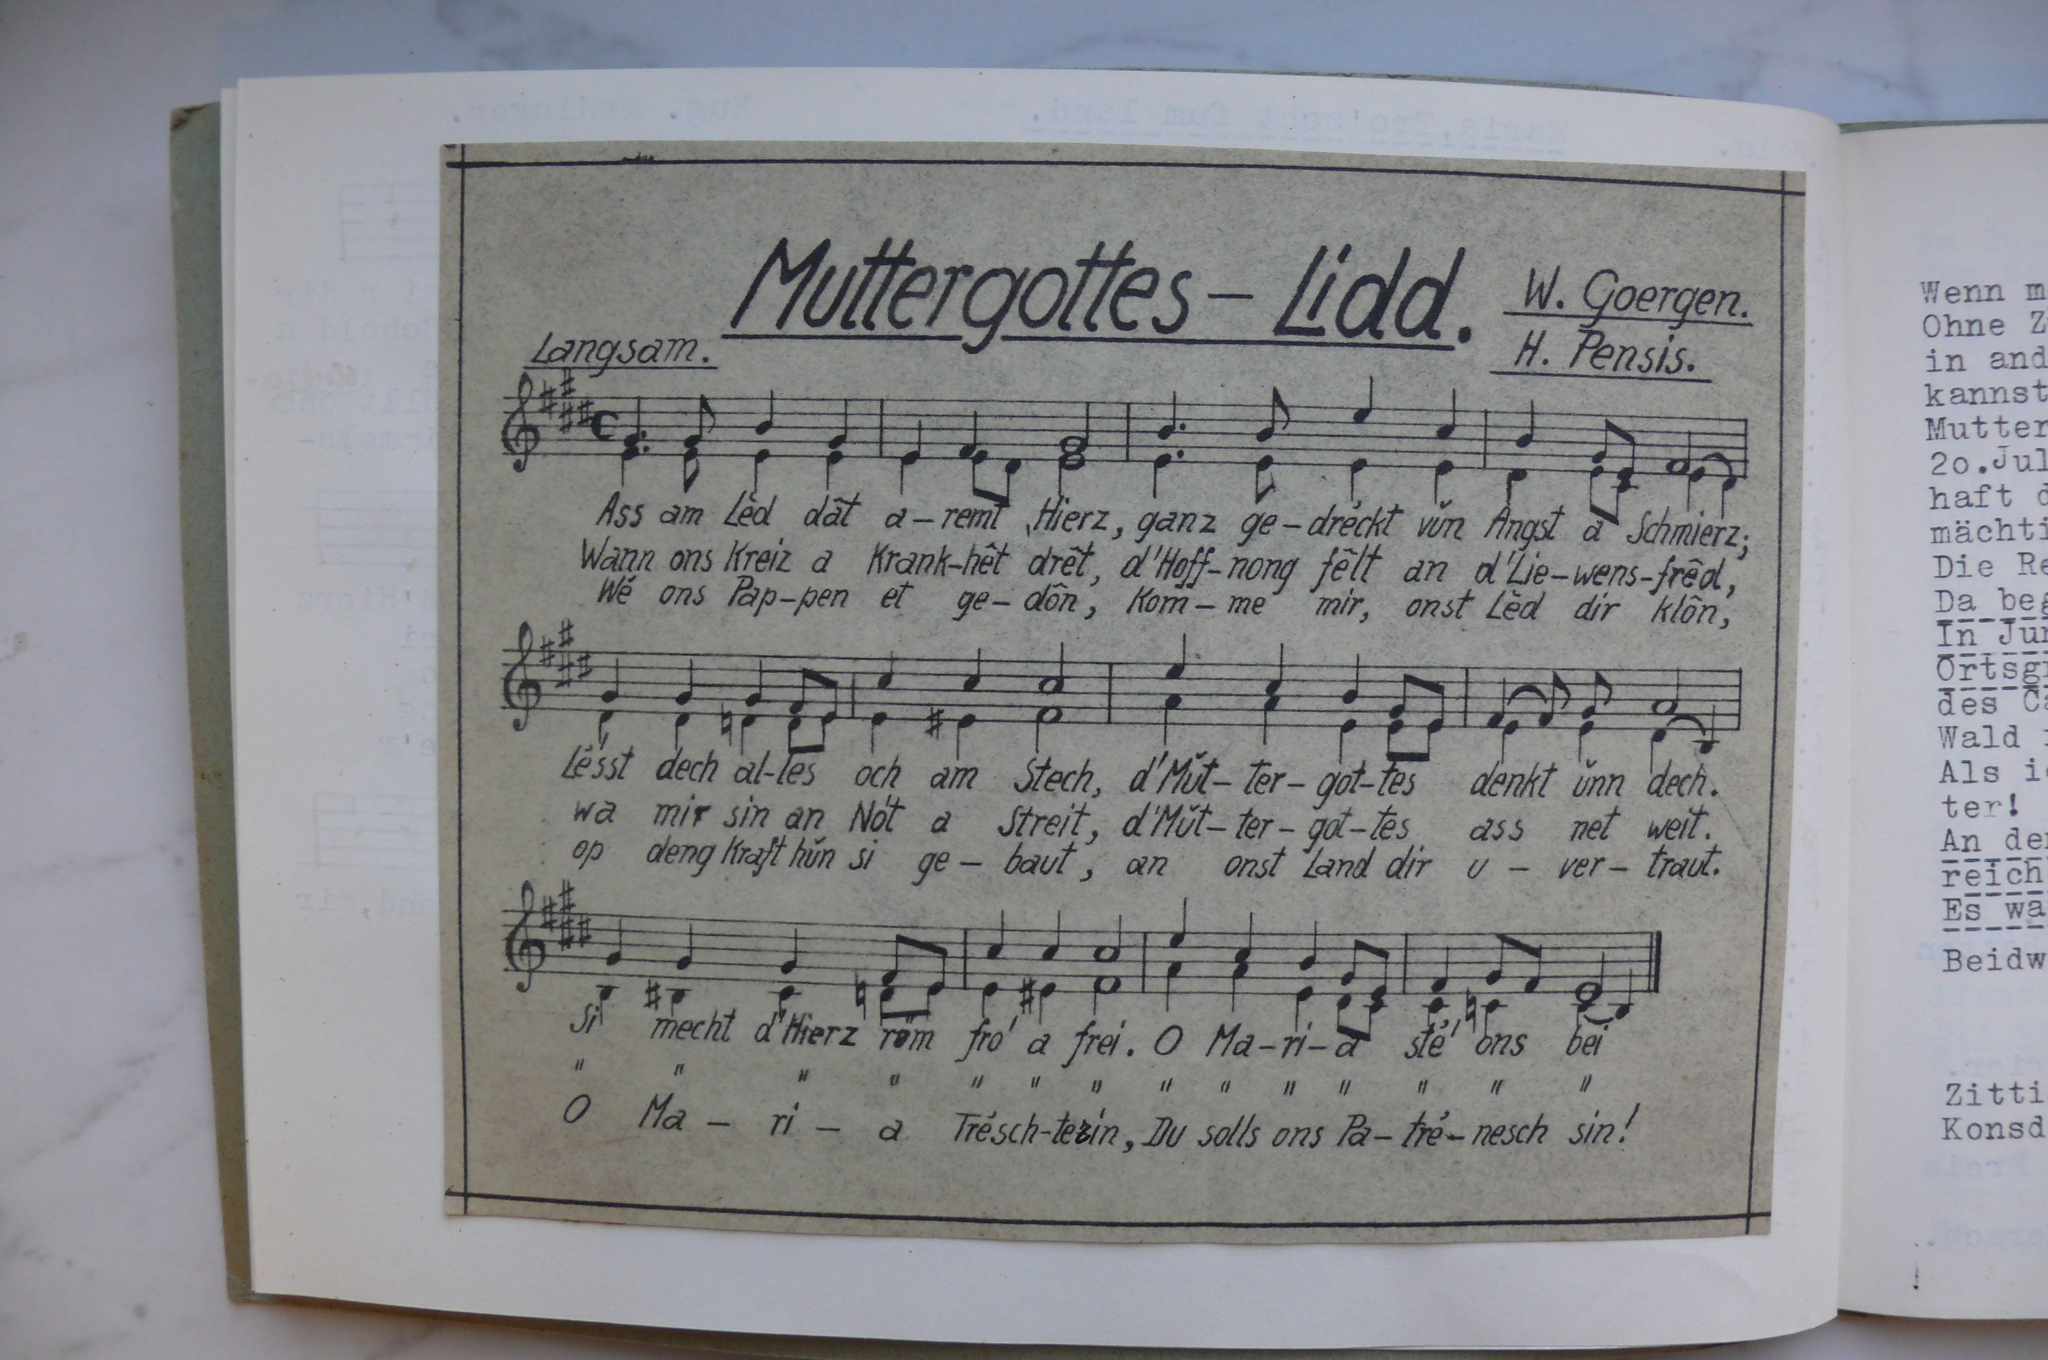 Muttergottes - Lidd.
W. Goergen.
H. Pensis.
Langsam.
Ass am Lèd dât a-remt Hierz, ganz ge-dréckt vŭn Angst a Schmierz;
Wann ons Kreiz a Krank-hêt drêt, d'Hoff-nong fêlt an d'Lie-wens-frêd,
Wé ons Pap-pen et ge-dôn, Kom-me mir, onst Lèd dir klôn,
Lésst dech al-les och am Stech, d'Mŭt-ter-got-tes denkt ŭnn dech.
wa mir sin an Nót a Streit, d'Mŭt-ter-got-tes ass net weit.
op deng Kraft hŭn si ge-baut, an onst Land dir u-ver-traut.
Si mecht d'Hierz rŏm fro' a frei. O Ma-ri-a sté' ons bei
" " " " " " " " " " " " " "
O Ma-ri-a Trésch-terin, Du solls ons Pa-tré-nesch sin!
Wenn m
Ohne Z
in and
kannst
Mutter
20.Jul
haft d
mächti
Die Re
Da beg
In Jun
Ortsgr
des Ca
Wald
Als ic
ter!
An der
reich
Es wa
Beidw
Zitti
Konsd